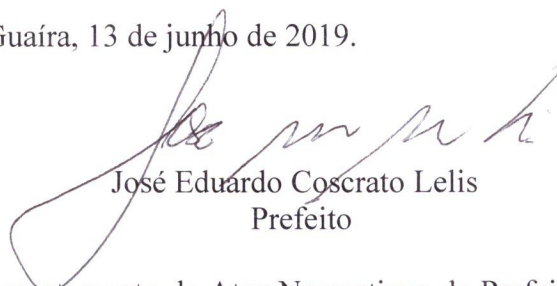 Guaíra, 13 de junho de 2019.
José Eduardo Coscrato Lelis
Prefeito
de Atos Normativos da Prefei